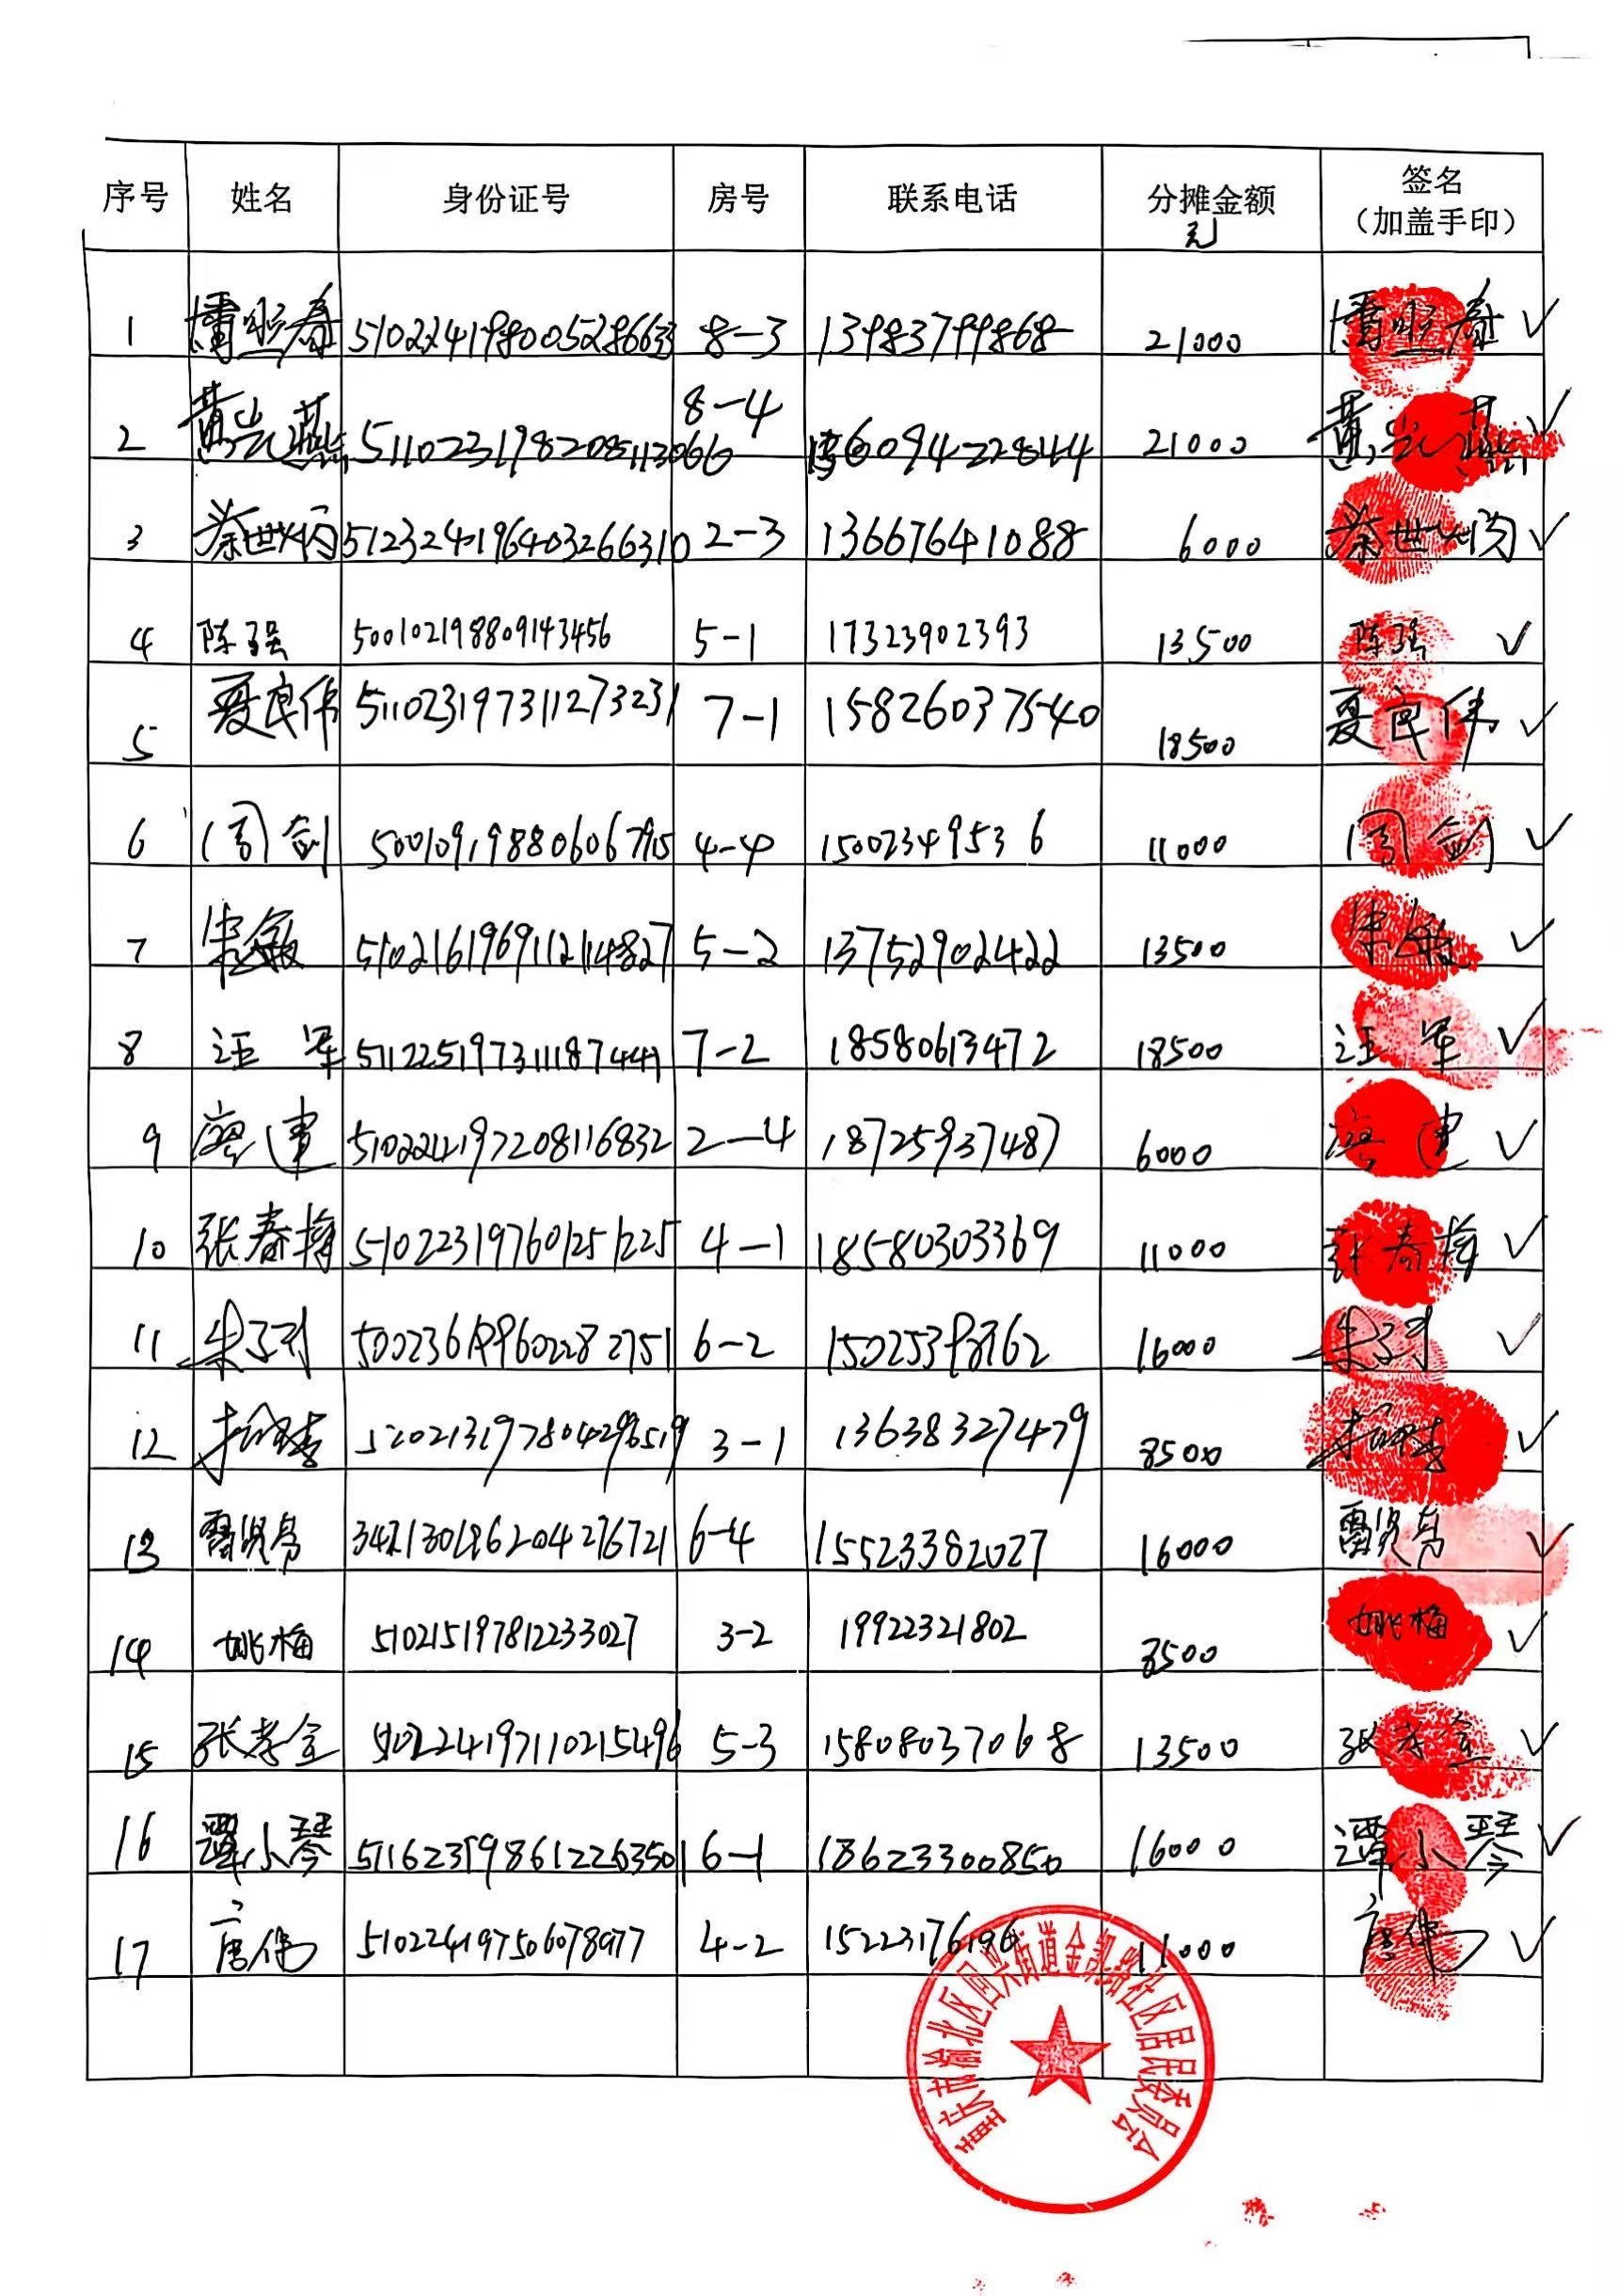 序号 姓名 身份证号 房号 联系电话 分摊金额 签名
元 (加盖手印)
1 8-3 13983799868 21000 ✓
8-4
2 黄光燕 21000 黄光燕 ✓
3 蔡世炳 512324196403266310 2-3 13667641088 6000 蔡世炳 ✓
4 陈强 500102198809143456 5-1 17323902393 13500 陈强 ✓
5 夏良伟 511023197311273231 7-1 15826037540 18500 夏良伟 ✓
6 周剑 4-4 15002349536 11000 周剑 ✓
7 朱敏 5-2 13752902422 13500 朱敏 ✓
8 汪军 7-2 18580613472 18500 汪军 ✓
9 廖建 510224197208116832 2-4 18725937487 6000 廖建 ✓
10 张春梅 510223197601251225 4-1 18580303369 11000 张春梅 ✓
11 6-2 16000 ✓
12 3-1 13638327479 8500 ✓
13 雷贤芳 6-4 15523382027 16000 雷贤芳 ✓
14 姚梅 510215197812233027 3-2 19922321802 8500 姚梅 ✓
15 张孝全 510224197110215496 5-3 15808037068 13500 张孝全 ✓
16 谭小琴 511623198612263501 6-1 18623300850 16000 谭小琴 ✓
17 唐伟 510224197506078977 4-2 15223176196 11000 唐伟 ✓
重庆市渝北区回兴街道金凯路社区居民委员会